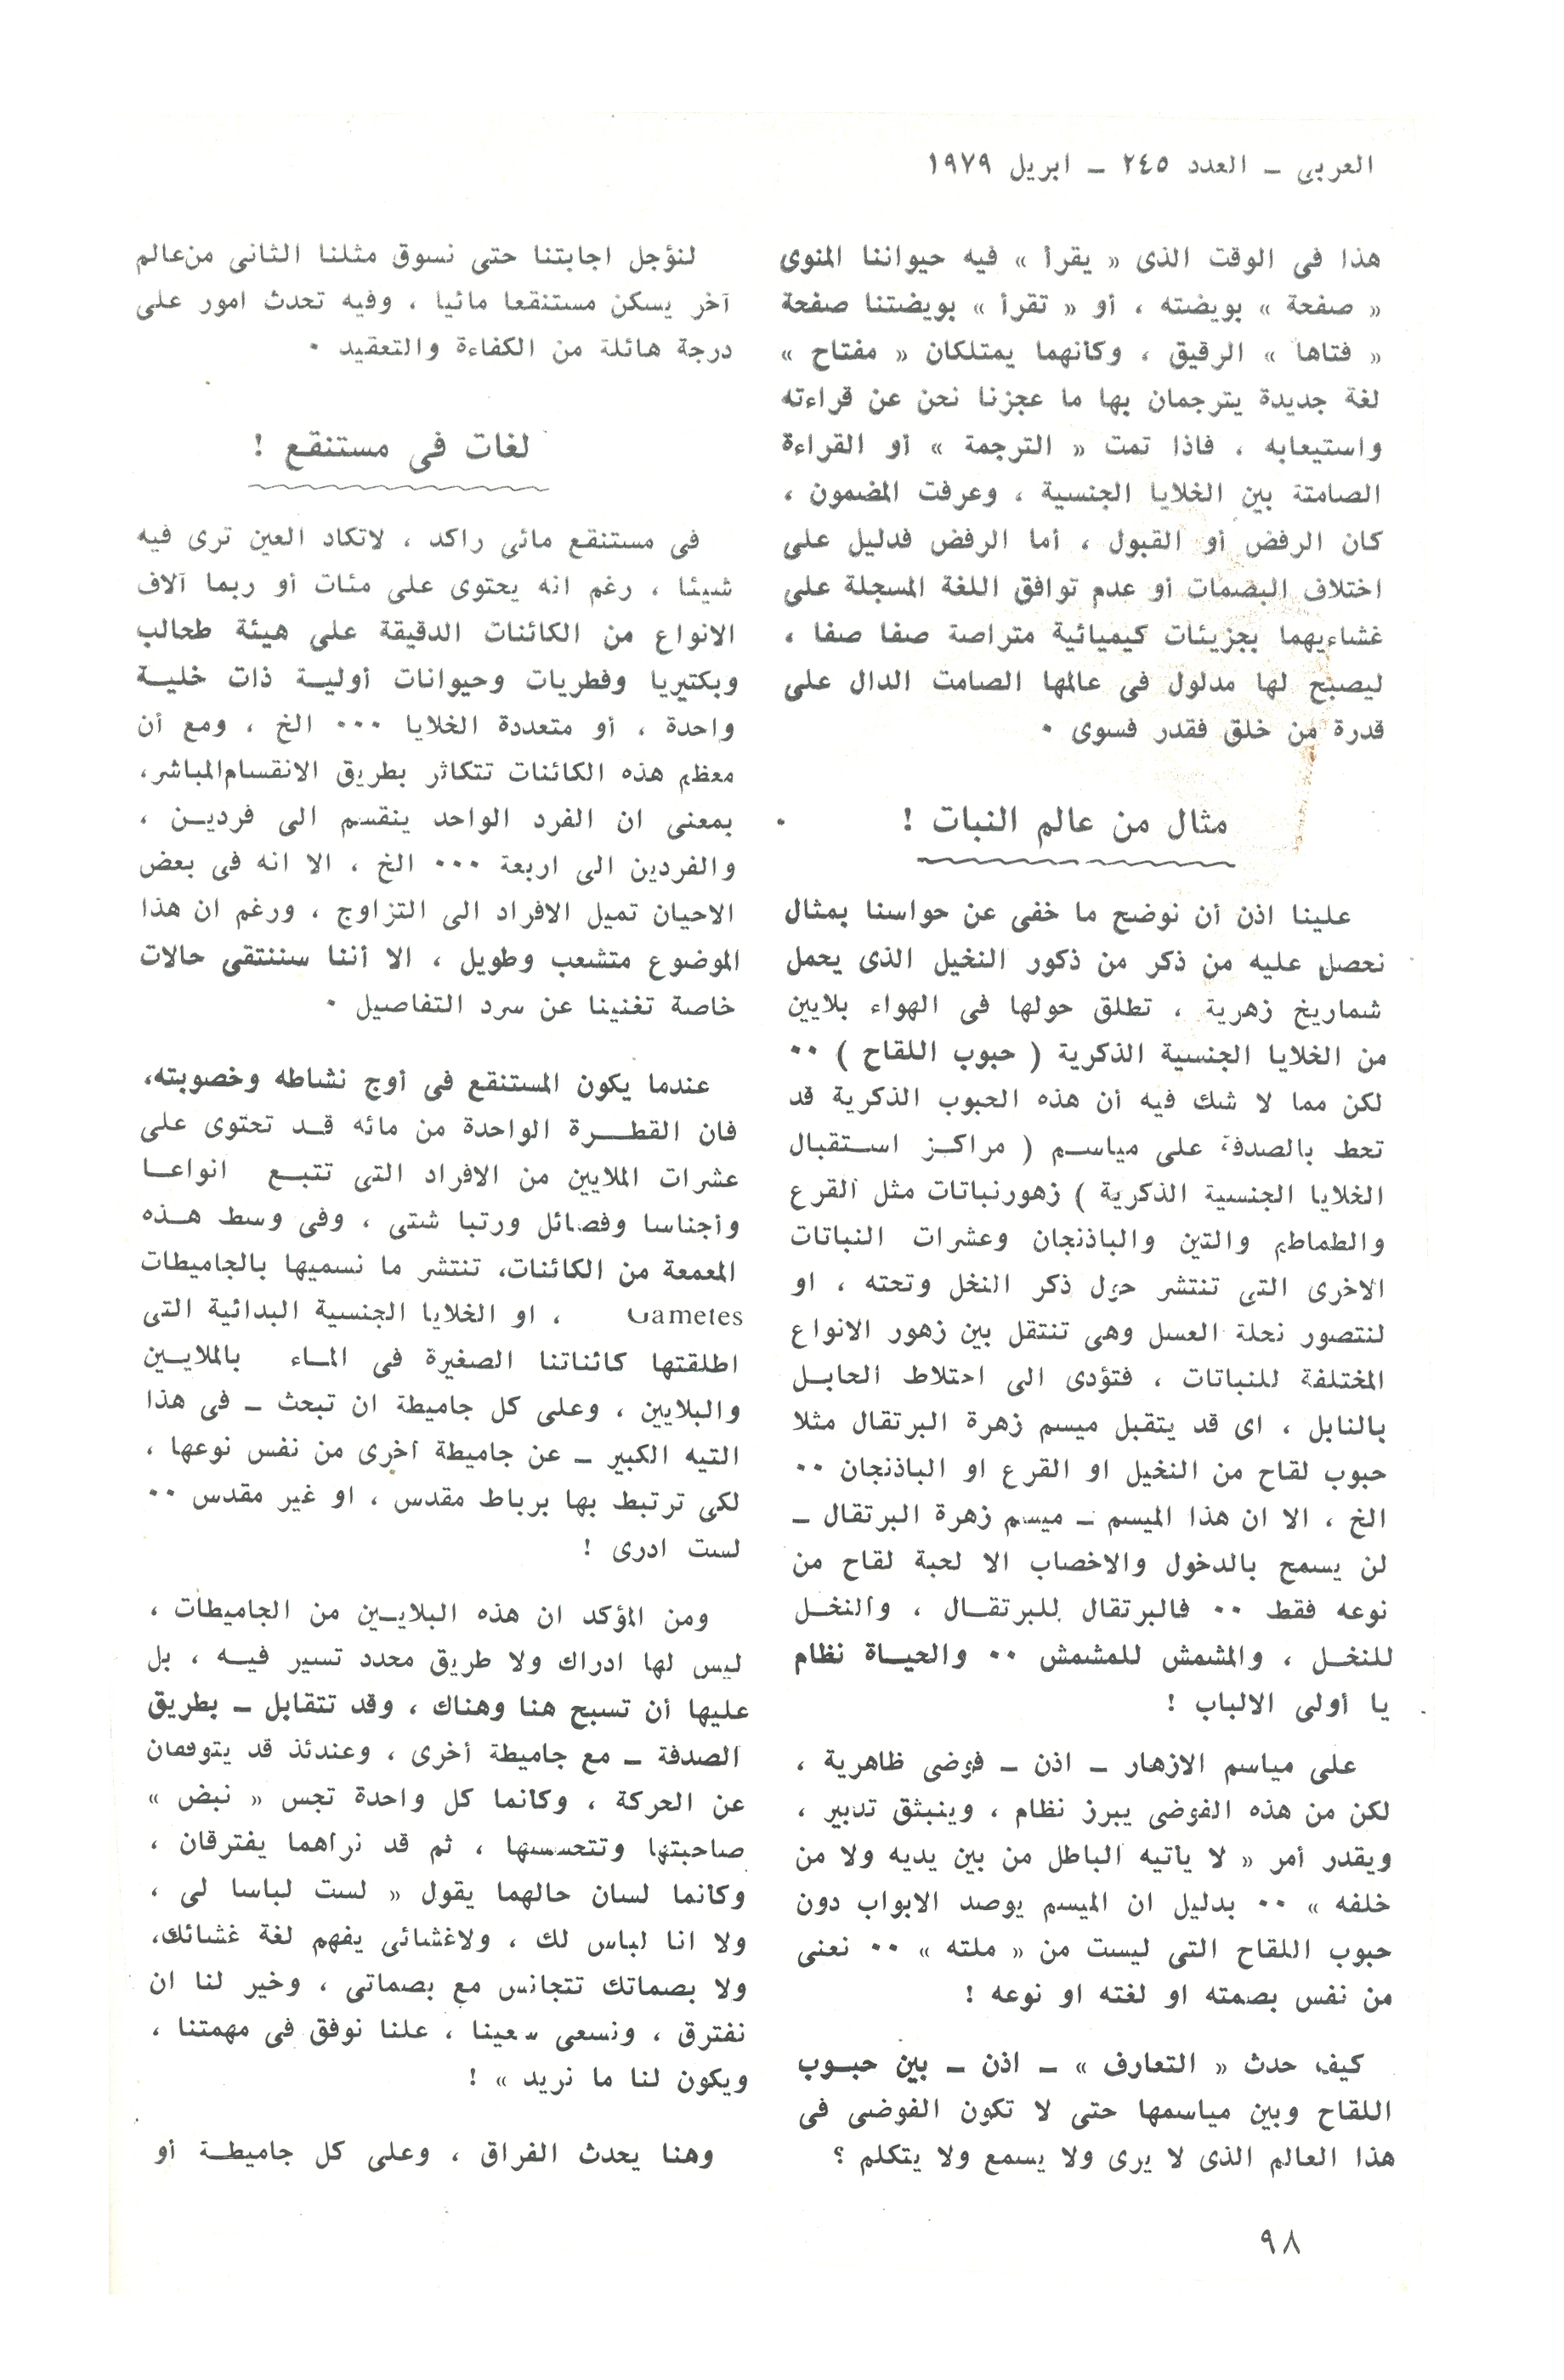 العربى ــ العدد ٢٤٥ ــ ابريل ١٩٧٩
هذا فى الوقت الذى « يقرأ » فيه حيواننا المنوى
« صفحة » بويضته ، أو « تقرأ » بويضتنا صفحة
« فتاها » الرقيق ، وكأنهما يمتلكان « مفتاح »
لغة جديدة يترجمان بها ما عجزنا نحن عن قراءته
واستيعابه ، فاذا تمت « الترجمة » أو القراءة
الصامتة بين الخلايا الجنسية ، وعرفت المضمون ،
كان الرفض أو القبول ، أما الرفض فدليل على
اختلاف البصمات أو عدم توافق اللغة المسجلة على
غشاءيهما بجزيئات كيميائية متراصة صفا صفا ،
ليصبح لها مدلول فى عالمها الصامت الدال على
قدرة من خلق فقدر فسوى ٠
مثال من عالم النبات !
علينا اذن أن نوضح ما خفى عن حواسنا بمثال
نحصل عليه من ذكر من ذكور النخيل الذى يحمل
شماريخ زهرية ، تطلق حولها فى الهواء بلايين
من الخلايا الجنسية الذكرية ( حبوب اللقاح ) ٠٠
لكن مما لا شك فيه أن هذه الحبوب الذكرية قد
تحط بالصدفة على مياسم ( مراكز استقبال
الخلايا الجنسية الذكرية ) زهورنباتات مثل القرع
والطماطم والتين والباذنجان وعشرات النباتات
الاخرى التى تنتشر حول ذكر النخل وتحته ، او
لنتصور نحلة العسل وهى تنتقل بين زهور الانواع
المختلفة للنباتات ، فتؤدى الى اختلاط الحابل
بالنابل ، اى قد يتقبل ميسم زهرة البرتقال مثلا
حبوب لقاح من النخيل او القرع او الباذنجان ٠٠
الخ ، الا ان هذا الميسم ــ ميسم زهرة البرتقال ــ
لن يسمح بالدخول والاخصاب الا لحبة لقاح من
نوعه فقط ٠٠ فالبرتقال للبرتقال ، والنخل
للنخل ، والمشمش للمشمش ٠٠ والحياة نظام
يا أولى الالباب !
على مياسم الازهار ــ اذن ــ فوضى ظاهرية ،
لكن من هذه الفوضى يبرز نظام ، وينبثق تدبير ،
ويقدر أمر « لا يأتيه الباطل من بين يديه ولا من
خلفه » ٠٠ بدليل ان الميسم يوصد الابواب دون
حبوب اللقاح التى ليست من « ملته » ٠٠ نعنى
من نفس بصمته او لغته او نوعه !
كيف حدث « التعارف » ــ اذن ــ بين حبوب
اللقاح وبين مياسمها حتى لا تكون الفوضى فى
هذا العالم الذى لا يرى ولا يسمع ولا يتكلم ؟
لنؤجل اجابتنا حتى نسوق مثلنا الثانى من عالم
آخر يسكن مستنقعا مائيا ، وفيه تحدث امور على
درجة هائلة من الكفاءة والتعقيد ٠
لغات فى مستنقع !
فى مستنقع مائى راكد ، لاتكاد العين ترى فيه
شيئا ، رغم انه يحتوى على مئات أو ربما آلاف
الانواع من الكائنات الدقيقة على هيئة طحالب
وبكتيريا وفطريات وحيوانات أولية ذات خلية
واحدة ، أو متعددة الخلايا ٠٠٠ الخ ، ومع أن
معظم هذه الكائنات تتكاثر بطريق الانقسام المباشر،
بمعنى ان الفرد الواحد ينقسم الى فردين ،
والفردين الى اربعة ٠٠٠ الخ ، الا انه فى بعض
الاحيان تميل الافراد الى التزاوج ، ورغم ان هذا
الموضوع متشعب وطويل ، الا أننا سننتقى حالات
خاصة تغنينا عن سرد التفاصيل ٠
عندما يكون المستنقع فى أوج نشاطه وخصوبته،
فان القطرة الواحدة من مائه قد تحتوى على
عشرات الملايين من الافراد التى تتبع انواعا
وأجناسا وفصائل ورتبا شتى ، وفى وسط هذه
المعمعة من الكائنات، تنتشر ما نسميها بالجاميطات
Gametes ، او الخلايا الجنسية البدائية التى
اطلقتها كائناتنا الصغيرة فى الماء بالملايين
والبلايين ، وعلى كل جاميطة ان تبحث ــ فى هذا
التيه الكبير ــ عن جاميطة أخرى من نفس نوعها ،
لكى ترتبط بها برباط مقدس ، او غير مقدس ٠٠
لست ادرى !
ومن المؤكد ان هذه البلايين من الجاميطات ،
ليس لها ادراك ولا طريق محدد تسير فيه ، بل
عليها أن تسبح هنا وهناك ، وقد تتقابل ــ بطريق
الصدفة ــ مع جاميطة أخرى ، وعندئذ قد يتوقفان
عن الحركة ، وكأنما كل واحدة تجس « نبض »
صاحبتها وتتحسسها ، ثم قد نراهما يفترقان ،
وكأنما لسان حالهما يقول « لست لباسا لى ،
ولا انا لباس لك ، ولاغشائى يفهم لغة غشائك،
ولا بصماتك تتجانس مع بصماتى ، وخير لنا ان
نفترق ، ونسعى سعينا ، علنا نوفق فى مهمتنا ،
ويكون لنا ما نريد » !
وهنا يحدث الفراق ، وعلى كل جاميطة أو
٩٨